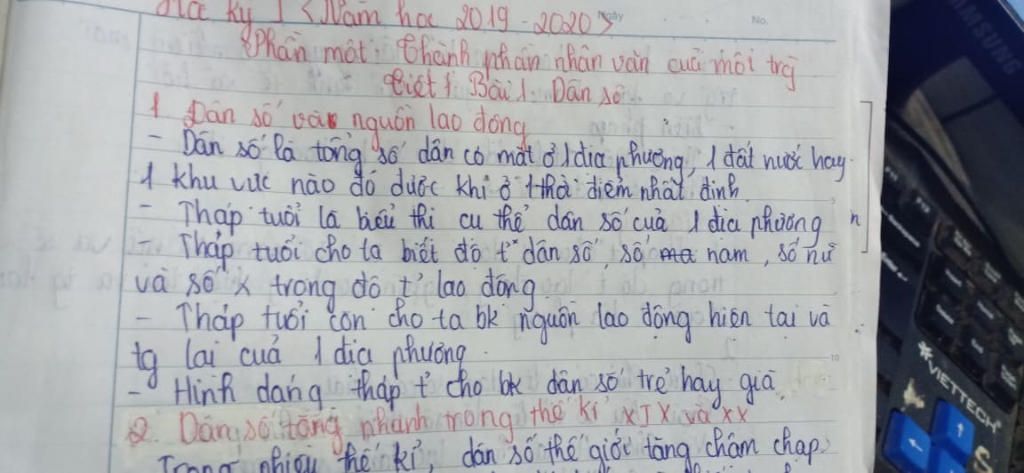 Học kỳ I <Năm học 2019-2020>
Ngày
No.
Phần một: Thành phần nhân văn của môi trg
Tiết 1 Bài 1. Dân số
1 Dân số và nguồn lao động
- Dân số là tổng số dân có mặt ở 1 địa phương, 1 đất nước hay
1 khu vực nào đó được khi ở 1 thời điểm nhất định
- Tháp tuổi là biểu thị cụ thể dân số của 1 địa phương
- Tháp tuổi cho ta biết độ t' dân số, số nam, số nữ
và số x trong độ t' lao động
- Tháp tuổi còn cho ta bk nguồn lao động hiện tại và
tg lai của 1 địa phương.
- Hình dáng tháp t' cho bk dân số trẻ hay già
2. Dân số tăng nhanh trong thế kỉ XIX và XX
Trong nhiều thế kỉ, dân số thế giới tăng chậm chạp.
SAMSUNG
VIETTECH
10